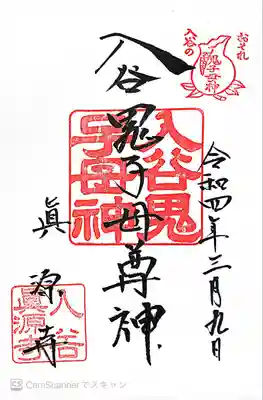 おそれ
入谷の
鬼子母神
令和四年三月九日
入谷鬼子母尊神
入谷鬼
子母神
眞源寺
入谷
眞源寺
CamScannerでスキャン